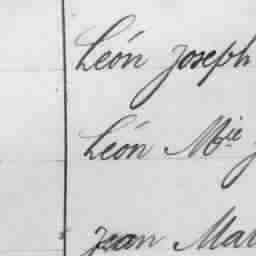 Léon Joseph
Léon Mie
Jean Mar